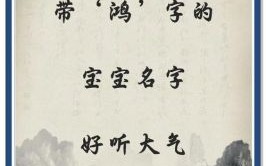 带‘鸿’字的
宝宝名字
好听大气